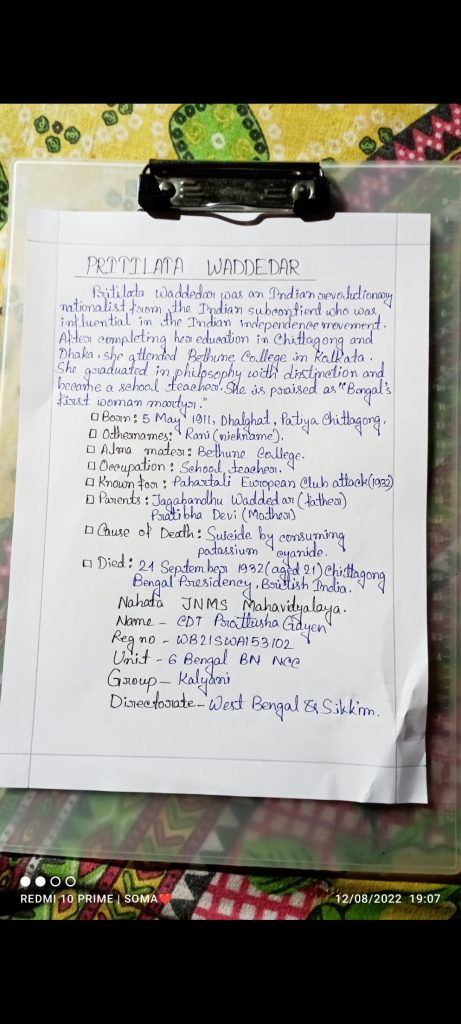 PRITILATA WADDEDAR
Pritilata Waddedar was an Indian revolutionary
nationalist from the Indian subcontient who was
influential in the Indian independence movement.
After completing her education in Chittagong and
Dhaka, she attended Bethune College in Kolkata.
She graduated in philosophy with distinction and
become a school teacher. She is praised as "Bengal's
first woman martyr."
□ Born: 5 May 1911, Dhalghat, Patiya Chittagong.
□ Othernames: Rani (nickname).
□ Alma mater: Bethune College.
□ Occupation: School teacher.
□ Known for: Pahartali European Club attack (1932)
□ Parents: Jagabandhu Waddedar (father)
Pratibha Devi (Mother)
□ Cause of Death: Suicide by consuming
potassium cyanide.
□ Died: 24 September 1932 (aged 21) Chittagong
Bengal Presidency, British India.
Nahata JNMS Mahavidyalaya.
Name - CDT Prattusha Gayen
Reg no - WB21SWA153102
Unit - 6 Bengal BN NCC
Group - Kalyani
Directorate - West Bengal & Sikkim.
REDMI 10 PRIME | SOMA❤
12/08/2022 19:07